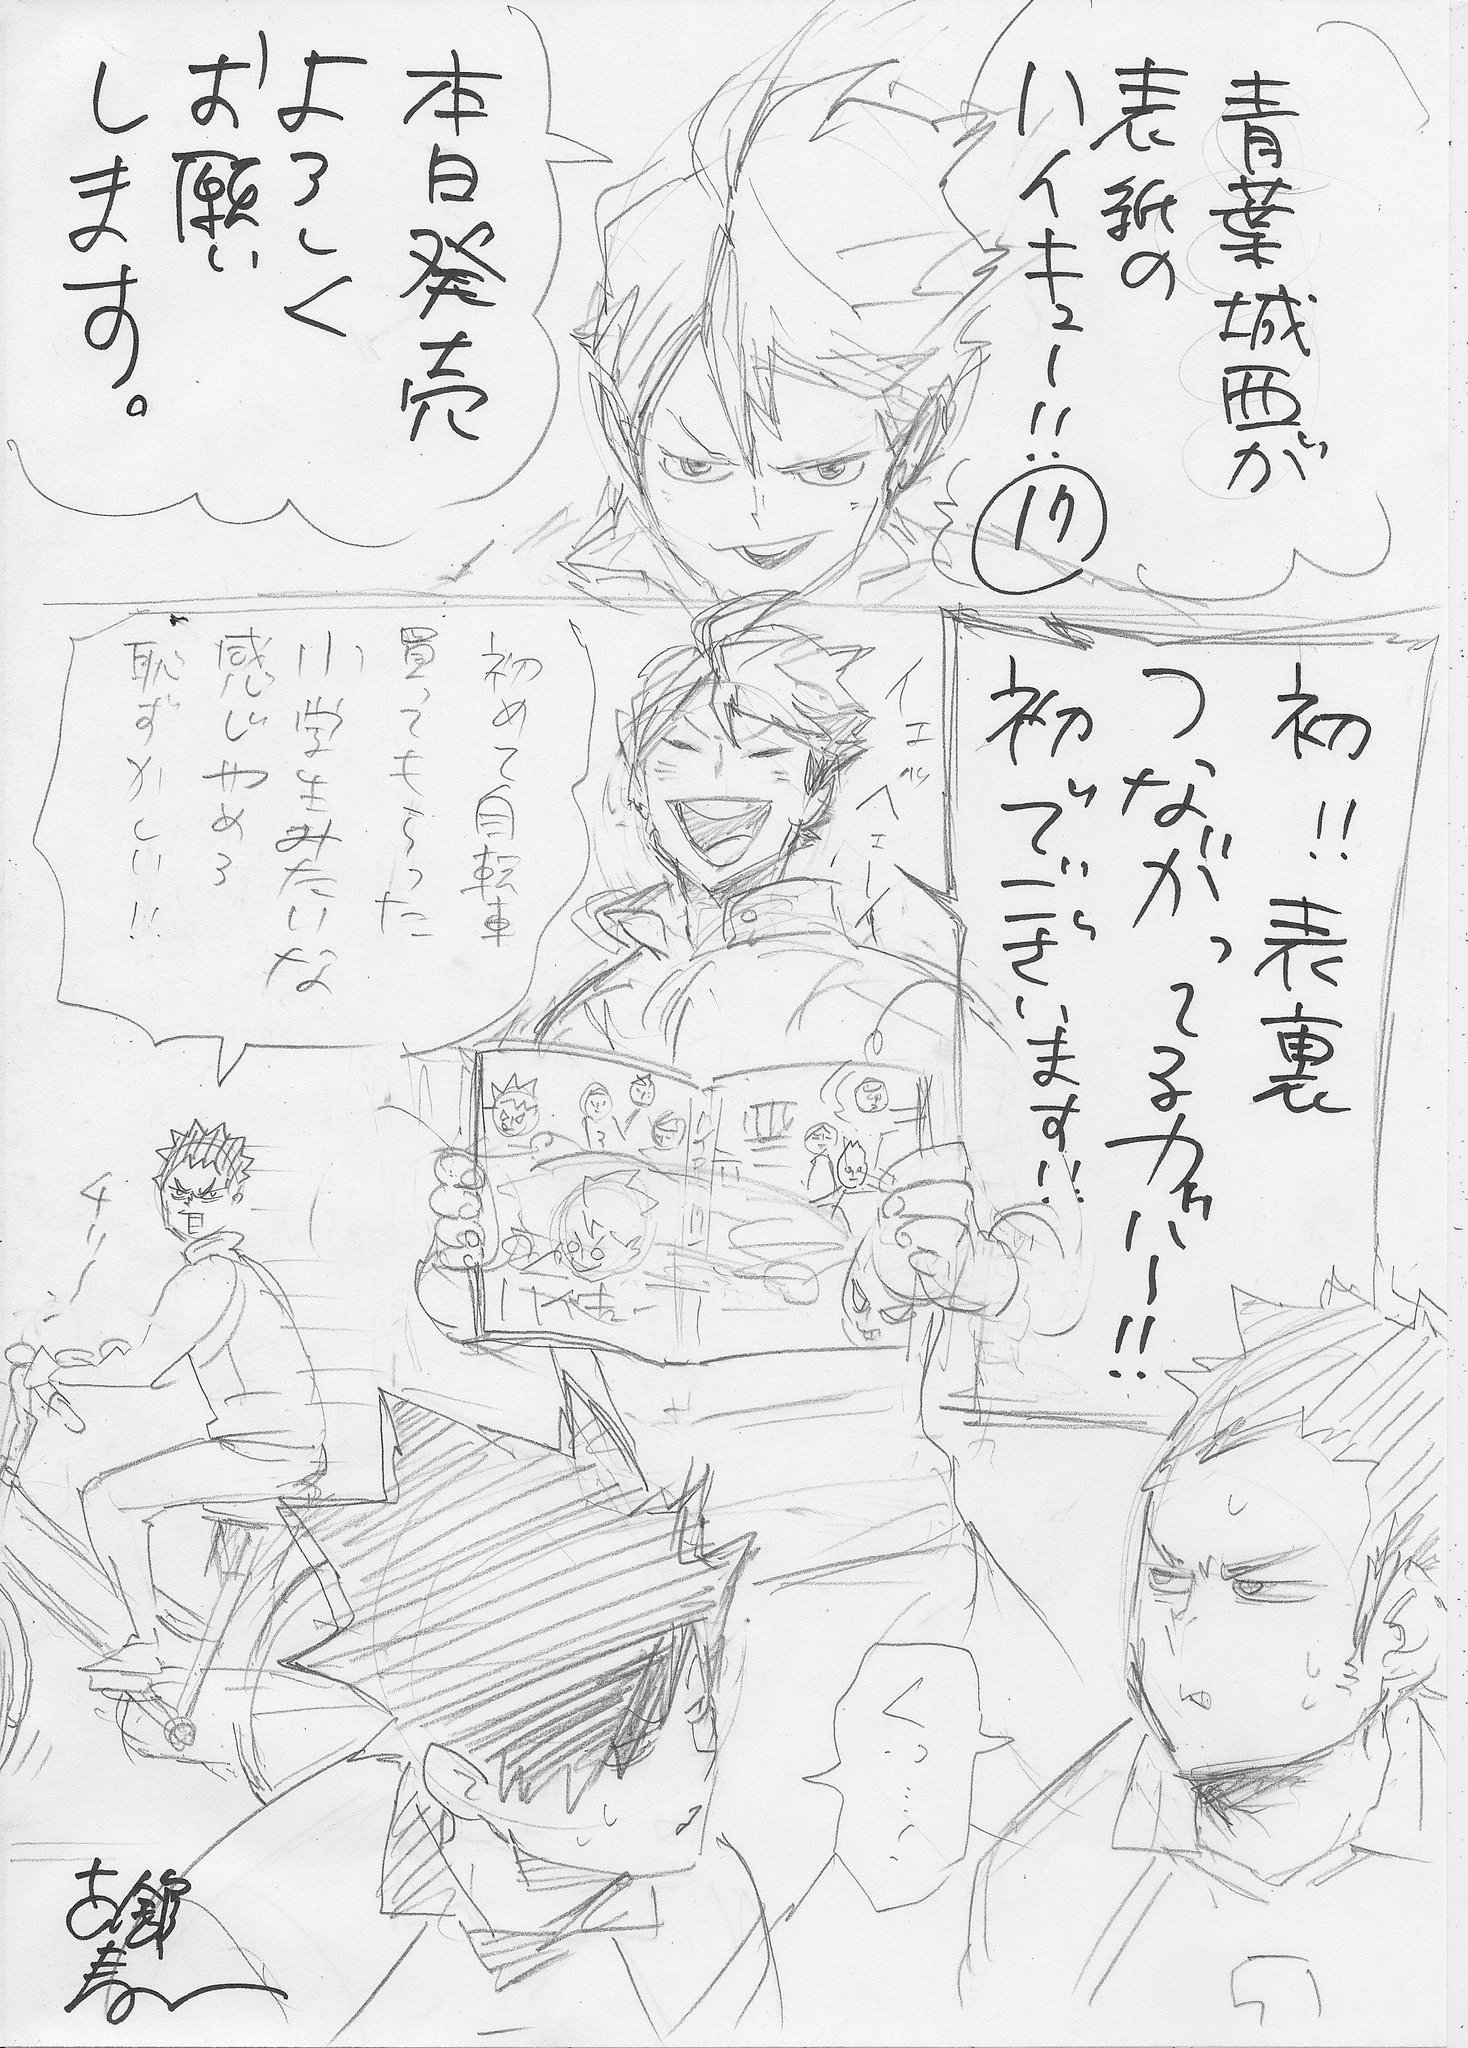 青葉城西が
表紙の
ハイキュー!!
17
本日発売
よろしく
お願い
します。
初!!表裏
つながってるカバー!!
初でございます!!
イエベェーイ
初めて自転車
買ってもらった
小学生みたいな
感じやめろ
恥ずかしい!!
ハイキュー
古舘
春一